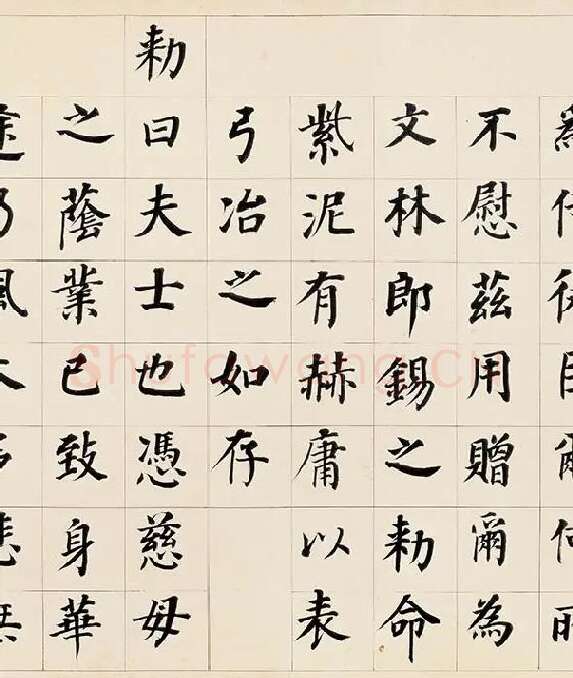 不慰茲用贈爾為
文林郎錫之勅命
紫泥有赫庸以表
弓冶之如存
勅曰夫士也憑慈母
之蔭業已致身華
Shufawang.CN